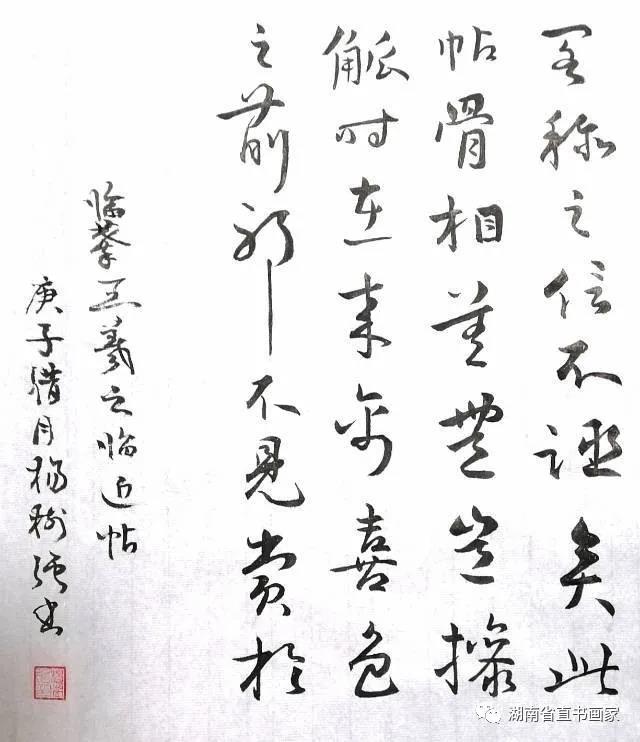 称之信不诬矣此
帖骨相差豊岂操
觚时在来禽喜色
之前耶不见赏於
临摹王羲之临近帖
庚子腊月杨树强书
湖南省直书画家